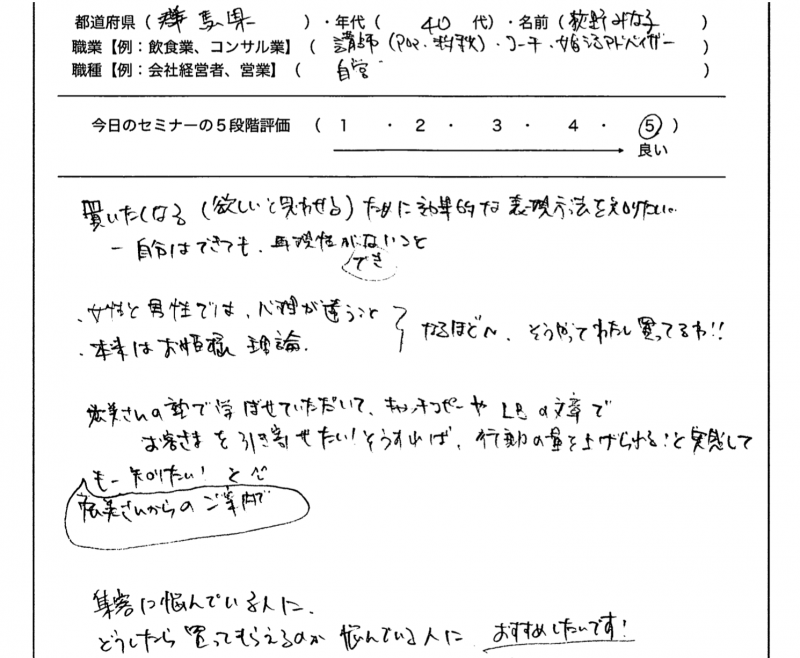 都道府県（群馬県）・年代（40代）・名前（荻野みな子）
職業【例：飲食業、コンサル業】（講師（POP・　）・コーチ・婚活アドバイザー
職種【例：会社経営者、営業】（自営）
今日のセミナーの５段階評価（1・2・3・4・5）
良い
買いたくなる（欲しいと思わせる）ために効果的な表現方法を知りたい。
ー自分はできても、再現性がないこと
でき
・女性と男性では、心理が違うこと
・本来はお姫様理論。
なるほど〜、そうやってわたし買ってるわ!!
さんの塾で学ばせていただいて、キャッチコピーやLPの文章で
お客さまを引き寄せたい！そうすれば、行動の量を上げられる！と実感して
もー知りたい！と
さんからのご案内で
集客に悩んでいる人に、
どうしたら買ってもらえるのか悩んでいる人に おすすめしたいです！